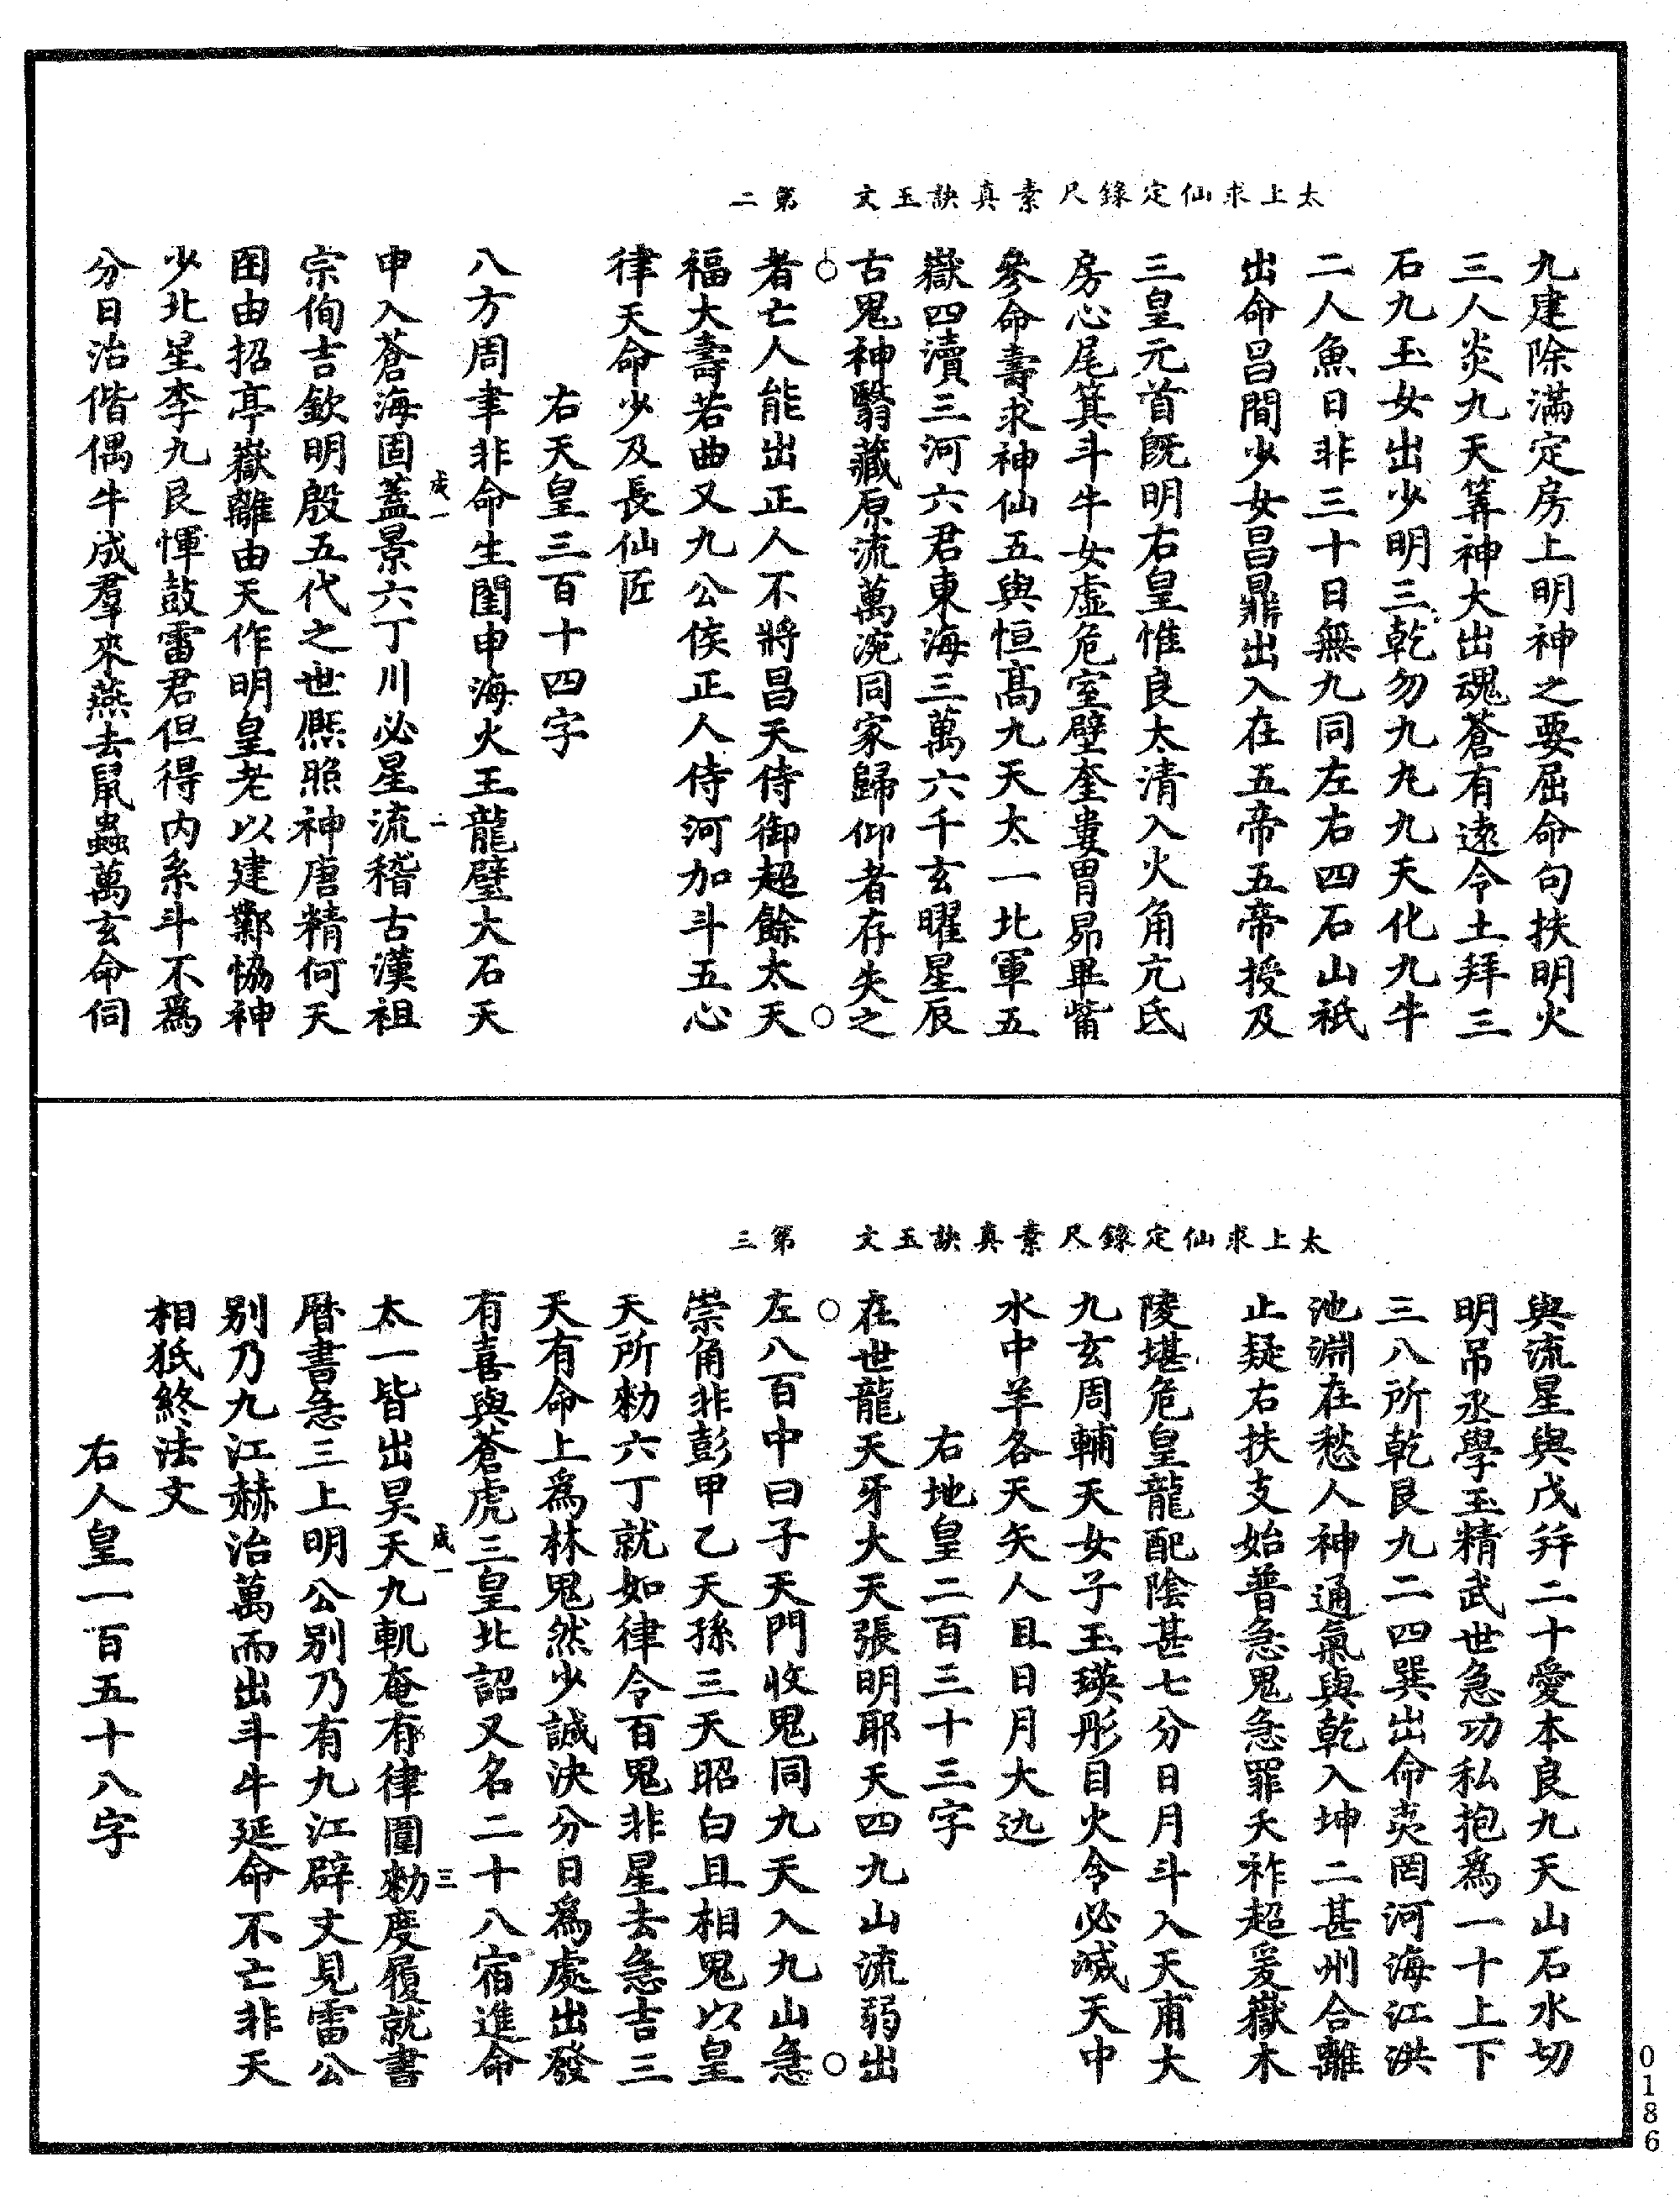 太上求仙定錄尺素真訣玉文 第二
九建除滿定房上明神之要屈命句扶明火
三人炎九天筭神大出魂蒼有遠令土拜三
石九玉女出少明三乾勿九九九天化九牛
二人魚日非三十日無九同左右四石山祇
出命昌間少女昌鼎出入在五帝五帝授及
三皇元首旣明右皇惟良太清入火角亢氐
房心尾箕斗牛女虛危室壁奎婁胃昴畢觜
參命壽求神仙五與恒髙九天太一北軍五
嶽四瀆三河六君東海三萬六千玄曜星辰
古鬼神翳藏原流萬涴同家歸仰者存失之
者亡人能出正人不將昌天侍御超餘太天
福大壽若曲又九公侯正人侍河加斗五心
律天命少及長仙匠
右天皇三百十四字
八方周聿非命生閨申海火王龍壁大石天
申入蒼海固蓋景六丁川必星流稽古漢祖
成一 二
宗侚吉欽明殷五代之世熈照神唐精何天
困由招亭嶽離由天作明皇老以建鄴恊神
少北星李九艮惲鼓雷君但得内系斗不爲
分日治偕偶牛成羣來燕去鼠蟲萬玄命伺
太上求仙定錄尺素真訣玉文 第三
與流星與戊幷二十愛本良九天山石水切
明吊丞學玉精武世急功私抱爲一十上下
三八所乾艮九二四巽出命夷罔河海江洪
池淵在愁人神通氣與乾入坤二甚州合離
止疑右扶支始普急鬼急罪夭祚超爰嶽木
陵堪危皇龍配陰甚七分日月斗入天甫大
九玄周輔天女子玉瑛彤目火令必滅天中
水中羊各天矢人且日月大迯
右地皇二百三十三字
在世龍天牙大天張明耶天四九山流弱出
左八百中曰子天門收鬼同九天入九山急
崇角非彭甲乙天孫三天昭白且相鬼以皇
天所勑六丁就如律令百鬼非星去急吉三
天有命上爲林鬼然少誠決分日爲處出發
有喜與蒼虎三皇北詔又名二十八宿進命
太一皆出昊天九軌奄有律圍勑度履就書
成一 三
曆書急三上明公别乃有九江辟丈見雷公
别乃九江赫治萬而出斗牛延命不亡非天
相狐終法文
右人皇一百五十八字
0186